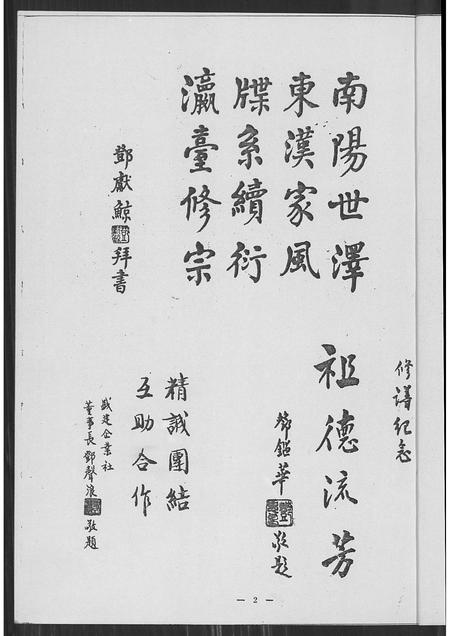 南陽世澤
東漢家風
牒系續衍
瀛臺修宗
鄧獻鯨
拜書
修譜紀念
祖德流芳
鄧鎰華
敬題
精誠團結
互助合作
盛建企業社
董事長鄧聲浪
敬題
— 2 —